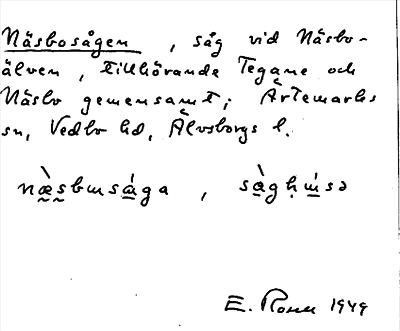 Näsbosågen, såg vid Näsbo-
älven, tillhörande Tegane och
Näsbo gemensamt; Ärtemarks
sn, Vedbo hd, Älvsborgs l.
næ̀sbɯsága, sàgḥɯ́sə
E. Rosell 1949